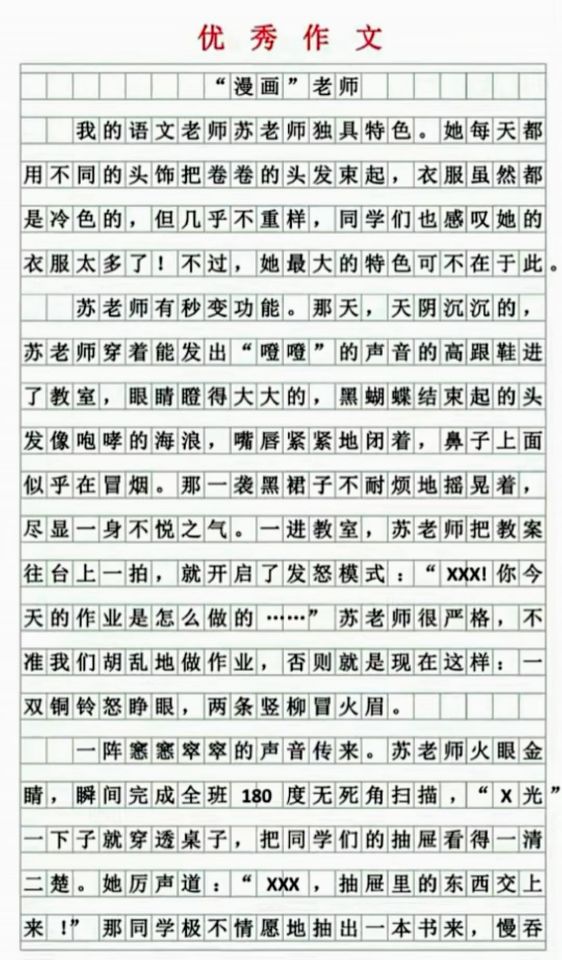 优秀作文
“漫画”老师
我的语文老师苏老师独具特色。她每天都
用不同的头饰把卷卷的头发束起，衣服虽然都
是冷色的，但几乎不重样，同学们也感叹她的
衣服太多了！不过，她最大的特色可不在于此。
苏老师有秒变功能。那天，天阴沉沉的，
苏老师穿着能发出“噔噔”的声音的高跟鞋进
了教室，眼睛瞪得大大的，黑蝴蝶结束起的头
发像咆哮的海浪，嘴唇紧紧地闭着，鼻子上面
似乎在冒烟。那一袭黑裙子不耐烦地摇晃着，
尽显一身不悦之气。一进教室，苏老师把教案
往台上一拍，就开启了发怒模式：“XXX!你今
天的作业是怎么做的……”苏老师很严格，不
准我们胡乱地做作业，否则就是现在这样：一
双铜铃怒睁眼，两条竖柳冒火眉。
一阵窸窸窣窣的声音传来。苏老师火眼金
睛，瞬间完成全班 180 度无死角扫描，“X光”
一下子就穿透桌子，把同学们的抽屉看得一清
二楚。她厉声道：“XXX，抽屉里的东西交上
来!”那同学极不情愿地抽出一本书来，慢吞